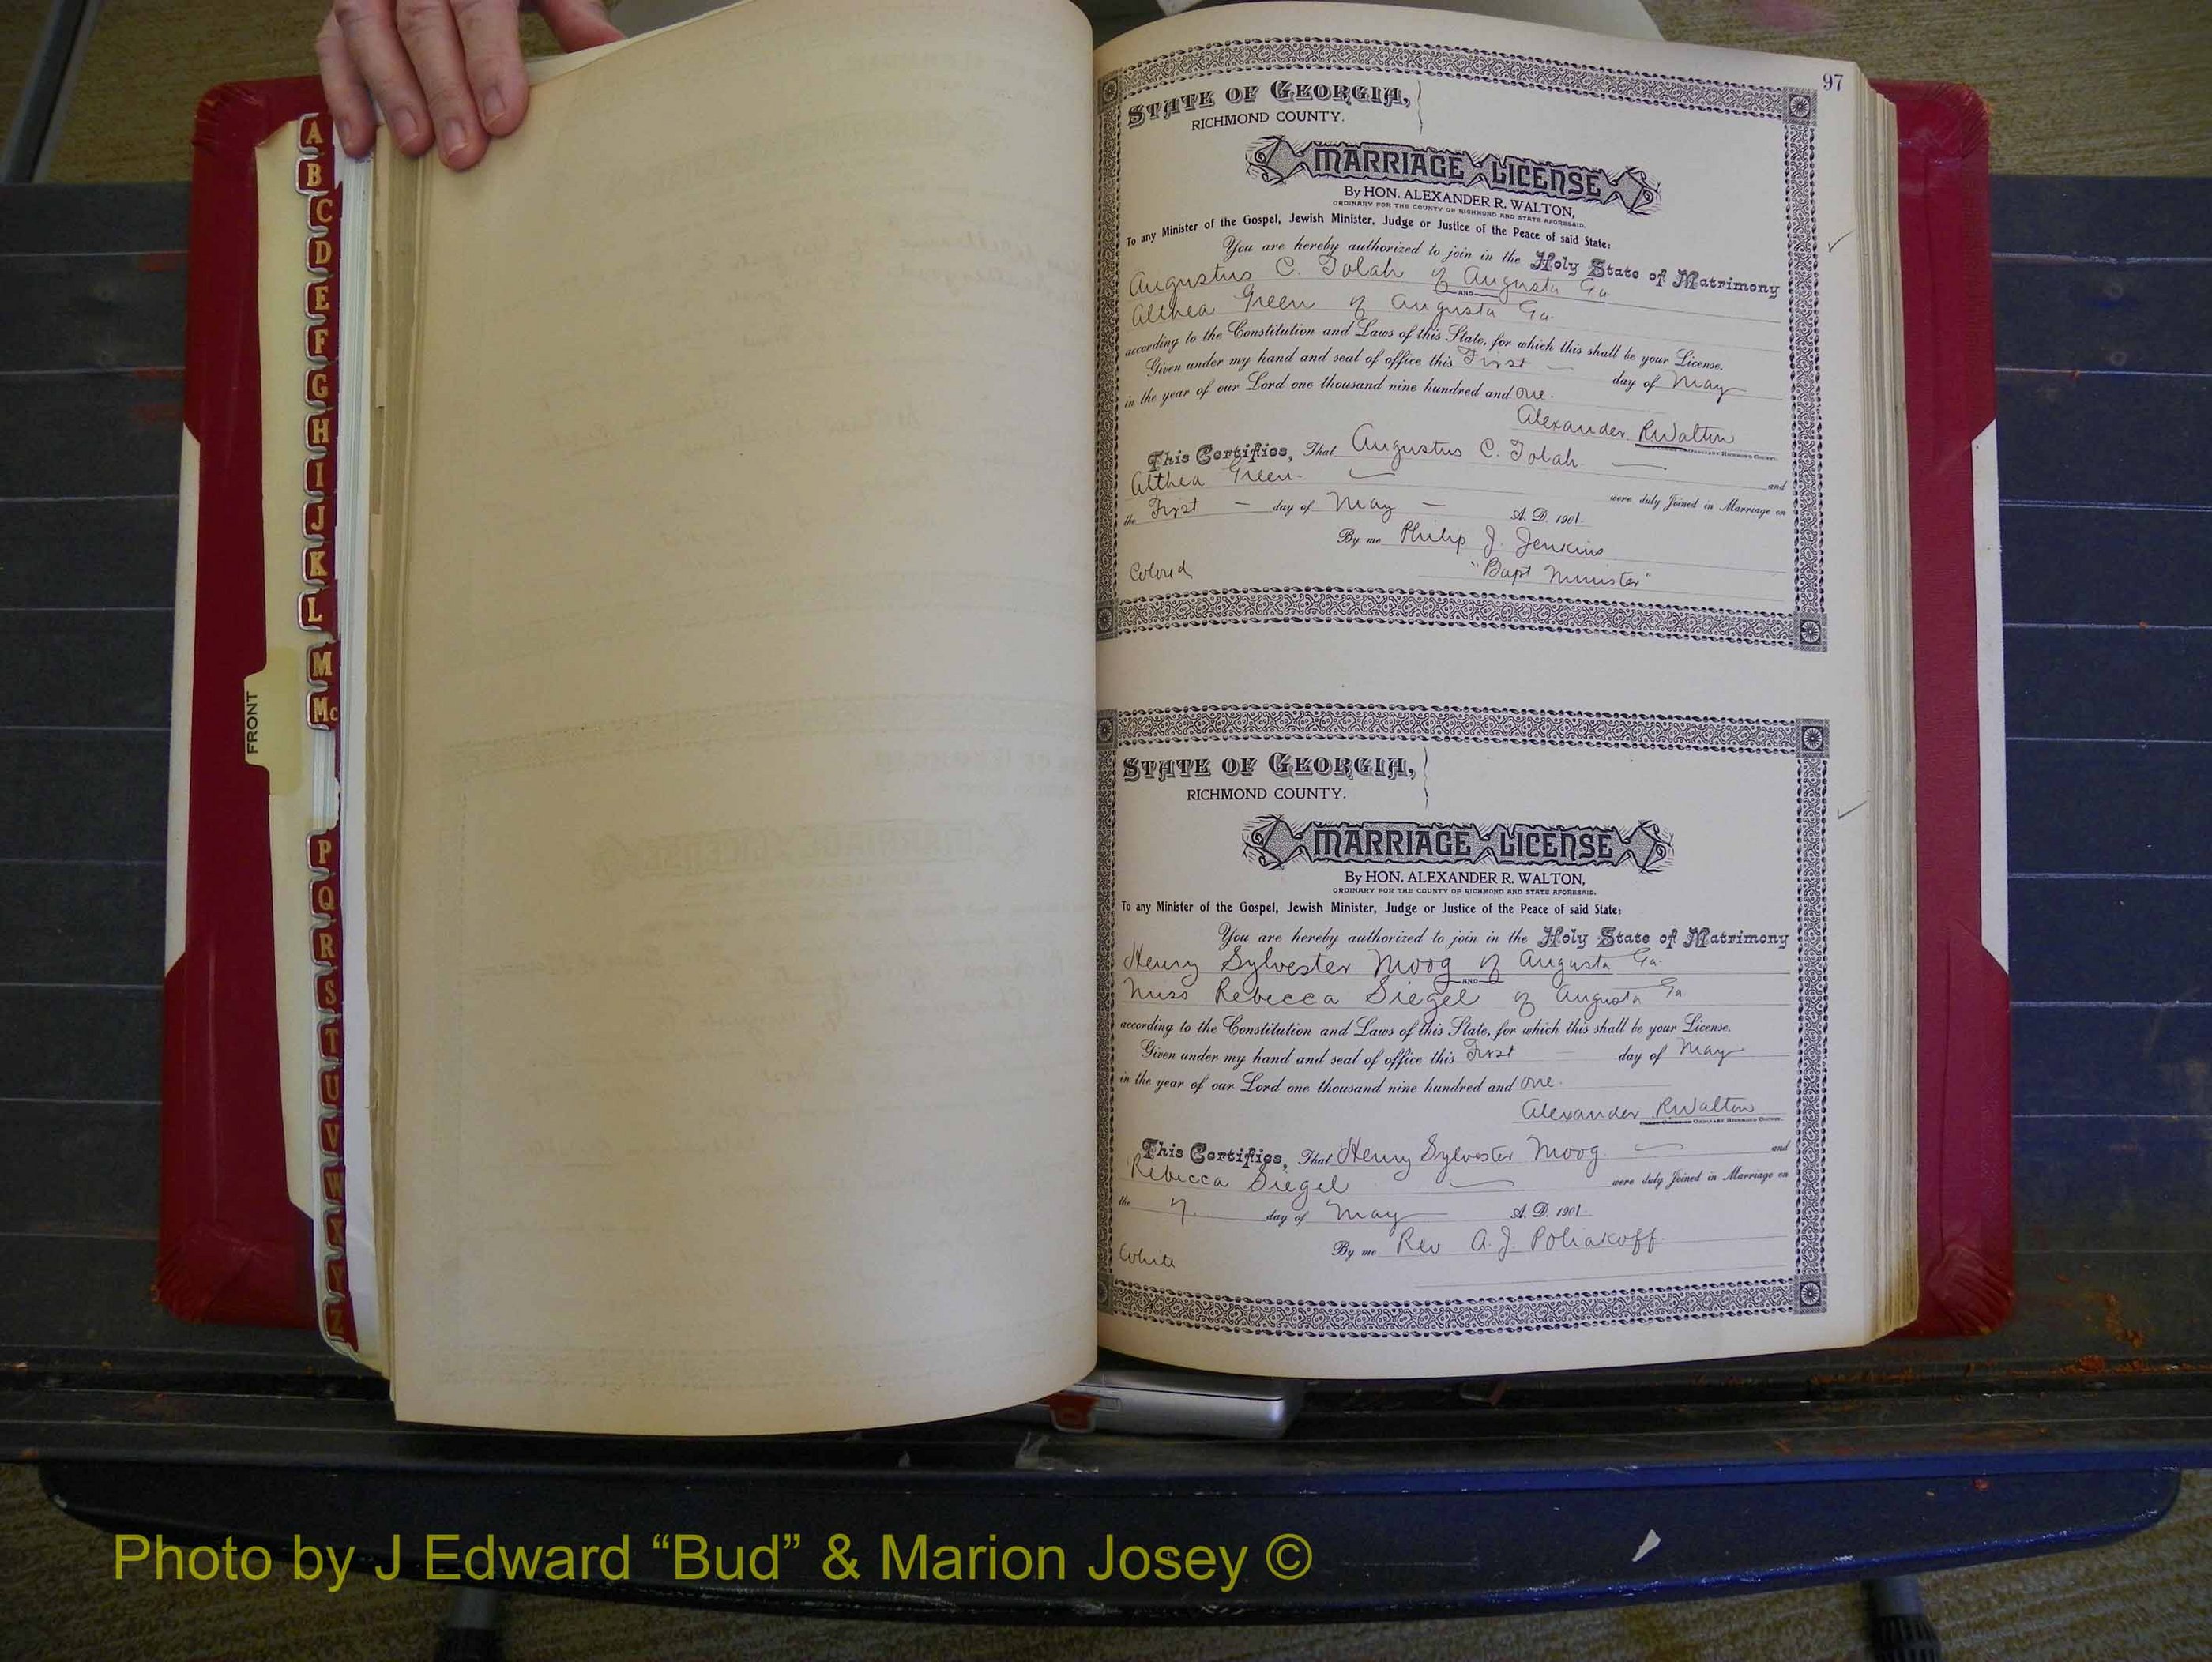 A
B
C
D
E
F
G
H
I
J
K
L
M
Mc
FRONT
P
Q
R
S
T
U
V
W
X
Y
Z
97
STATE OF GEORGIA,
RICHMOND COUNTY.
MARRIAGE LICENSE
By HON. ALEXANDER R. WALTON,
ORDINARY FOR THE COUNTY OF RICHMOND AND STATE AFORESAID.
To any Minister of the Gospel, Jewish Minister, Judge or Justice of the Peace of said State:
You are hereby authorized to join in the Holy State of Matrimony
Augustus C. Tolah of Augusta Ga.
AND
Althea Green of Augusta Ga.
according to the Constitution and Laws of this State, for which this shall be your License.
Given under my hand and seal of office this First day of May
in the year of our Lord one thousand nine hundred and one.
Alexander R Walton
ORDINARY RICHMOND COUNTY.
This Certifies, That Augustus C. Tolah and
Althea Green were duly Joined in Marriage on
the First day of May A. D. 1901
By me Philip J. Jenkins
Colored "Bapt Minister"
STATE OF GEORGIA,
RICHMOND COUNTY.
MARRIAGE LICENSE
By HON. ALEXANDER R. WALTON,
ORDINARY FOR THE COUNTY OF RICHMOND AND STATE AFORESAID.
To any Minister of the Gospel, Jewish Minister, Judge or Justice of the Peace of said State:
You are hereby authorized to join in the Holy State of Matrimony
Henry Sylvester Moog of Augusta Ga.
AND
Miss Rebecca Siegel of Augusta Ga
according to the Constitution and Laws of this State, for which this shall be your License.
Given under my hand and seal of office this First day of May
in the year of our Lord one thousand nine hundred and one.
Alexander R Walton
ORDINARY RICHMOND COUNTY.
This Certifies, That Henry Sylvester Moog and
Rebecca Siegel were duly Joined in Marriage on
the 7. day of May A. D. 1901
By me Rev A. J. Poliakoff
White
Photo by J Edward “Bud” & Marion Josey ©